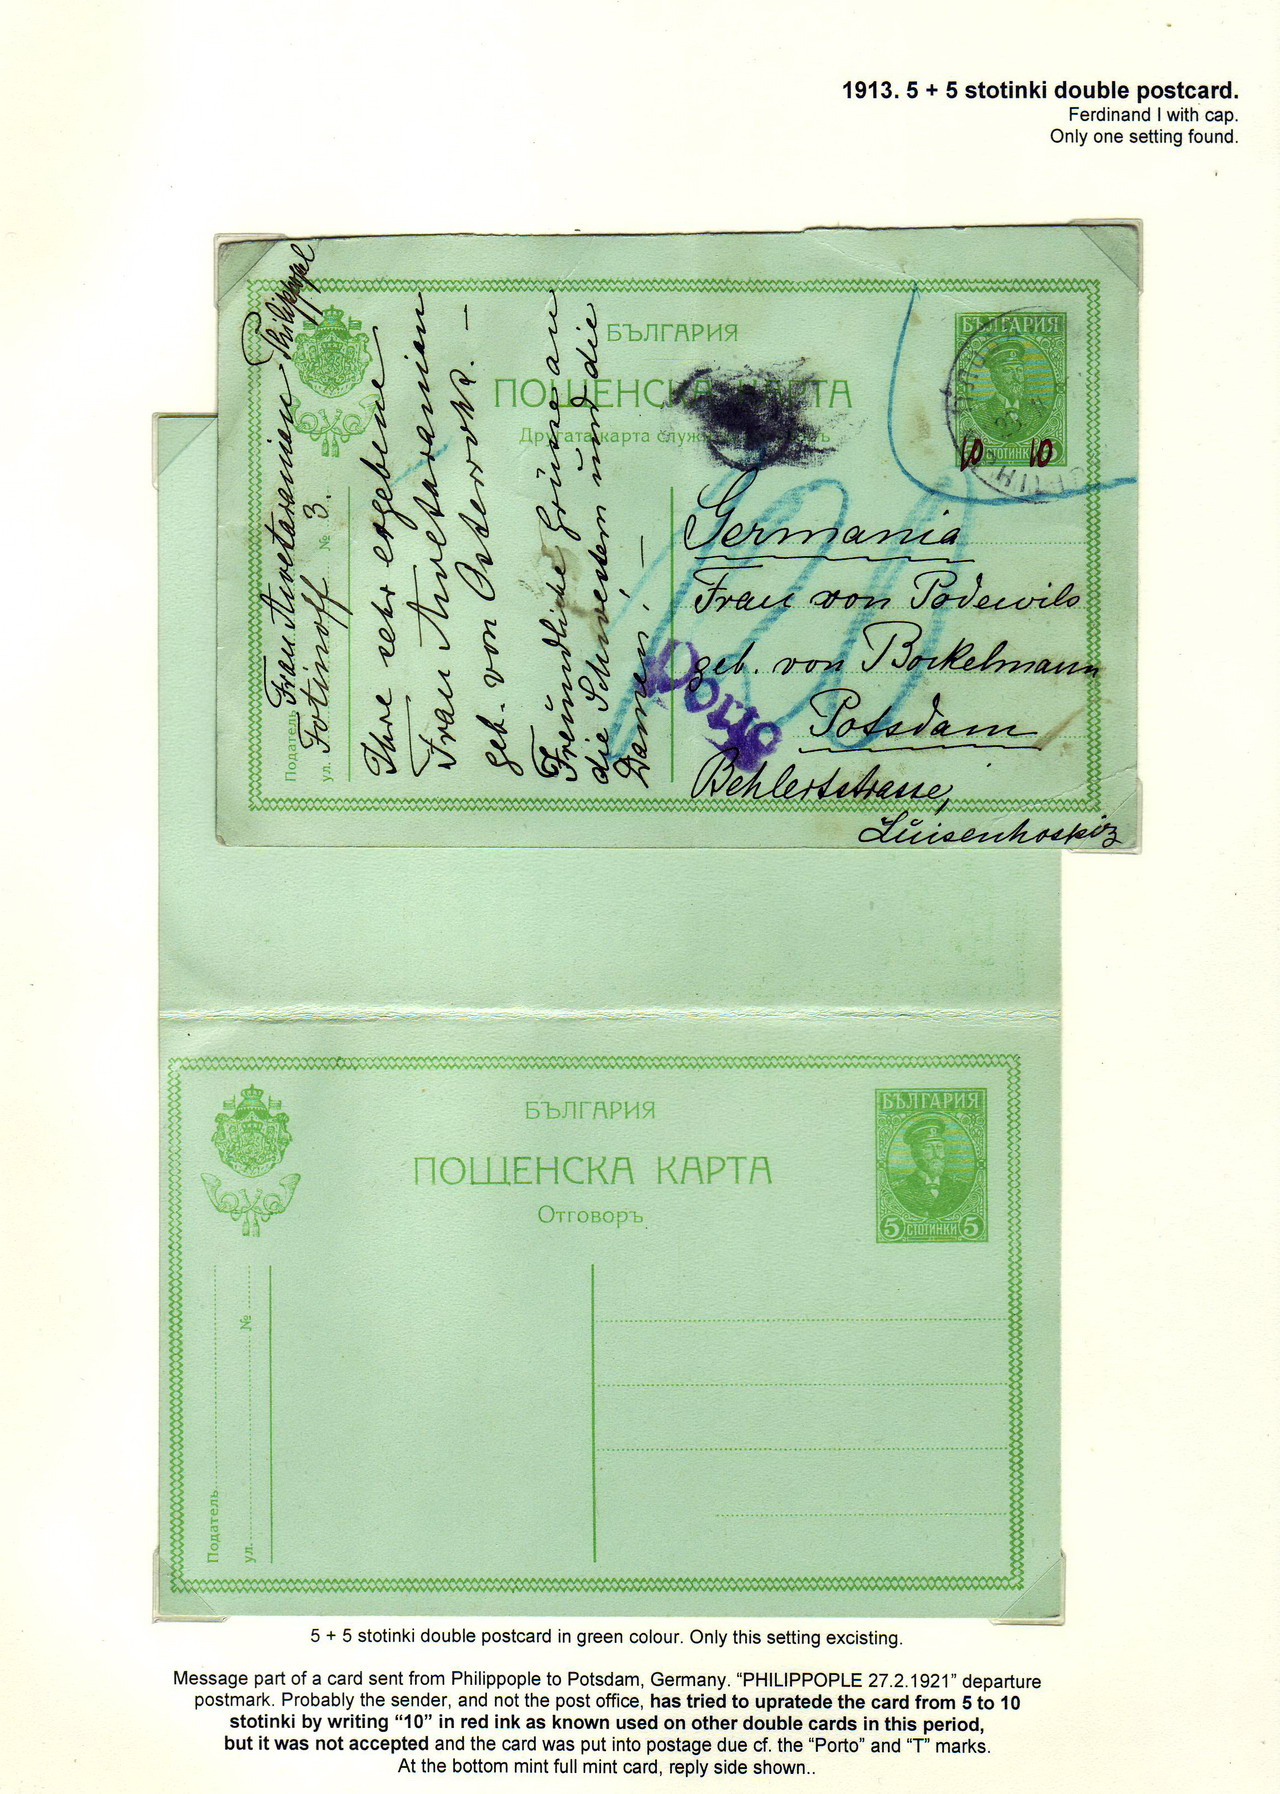 1913. 5 + 5 stotinki double postcard.
Ferdinand I with cap.
Only one setting found.
БЪЛГАРИЯ
ПОЩЕНСКА КАРТА
Другата карта служи
БЪЛГАРИЯ
СТОТИНКИ
10 10
Податель Frau Awetaranian Philippopl
ул. Fotinoff № 3.
Ihre sehr ergebene
Frau Awetaranian
geb. von Osterroht.
Freundliche Grüsse an
die Schwestern und die
Damen, —
Germania
Frau von Podewils
geb. von Bockelmann
Potsdam
Behlertstrasse,
Luisenhospiz
Porto
10
БЪЛГАРИЯ
ПОЩЕНСКА КАРТА
Отговоръ
БЪЛГАРИЯ
5 СТОТИНКИ 5
Податель
ул. №
5 + 5 stotinki double postcard in green colour. Only this setting excisting.
Message part of a card sent from Philippople to Potsdam, Germany. “PHILIPPOPLE 27.2.1921” departure
postmark. Probably the sender, and not the post office, has tried to upratede the card from 5 to 10
stotinki by writing “10” in red ink as known used on other double cards in this period,
but it was not accepted and the card was put into postage due cf. the “Porto” and “T” marks.
At the bottom mint full mint card, reply side shown..